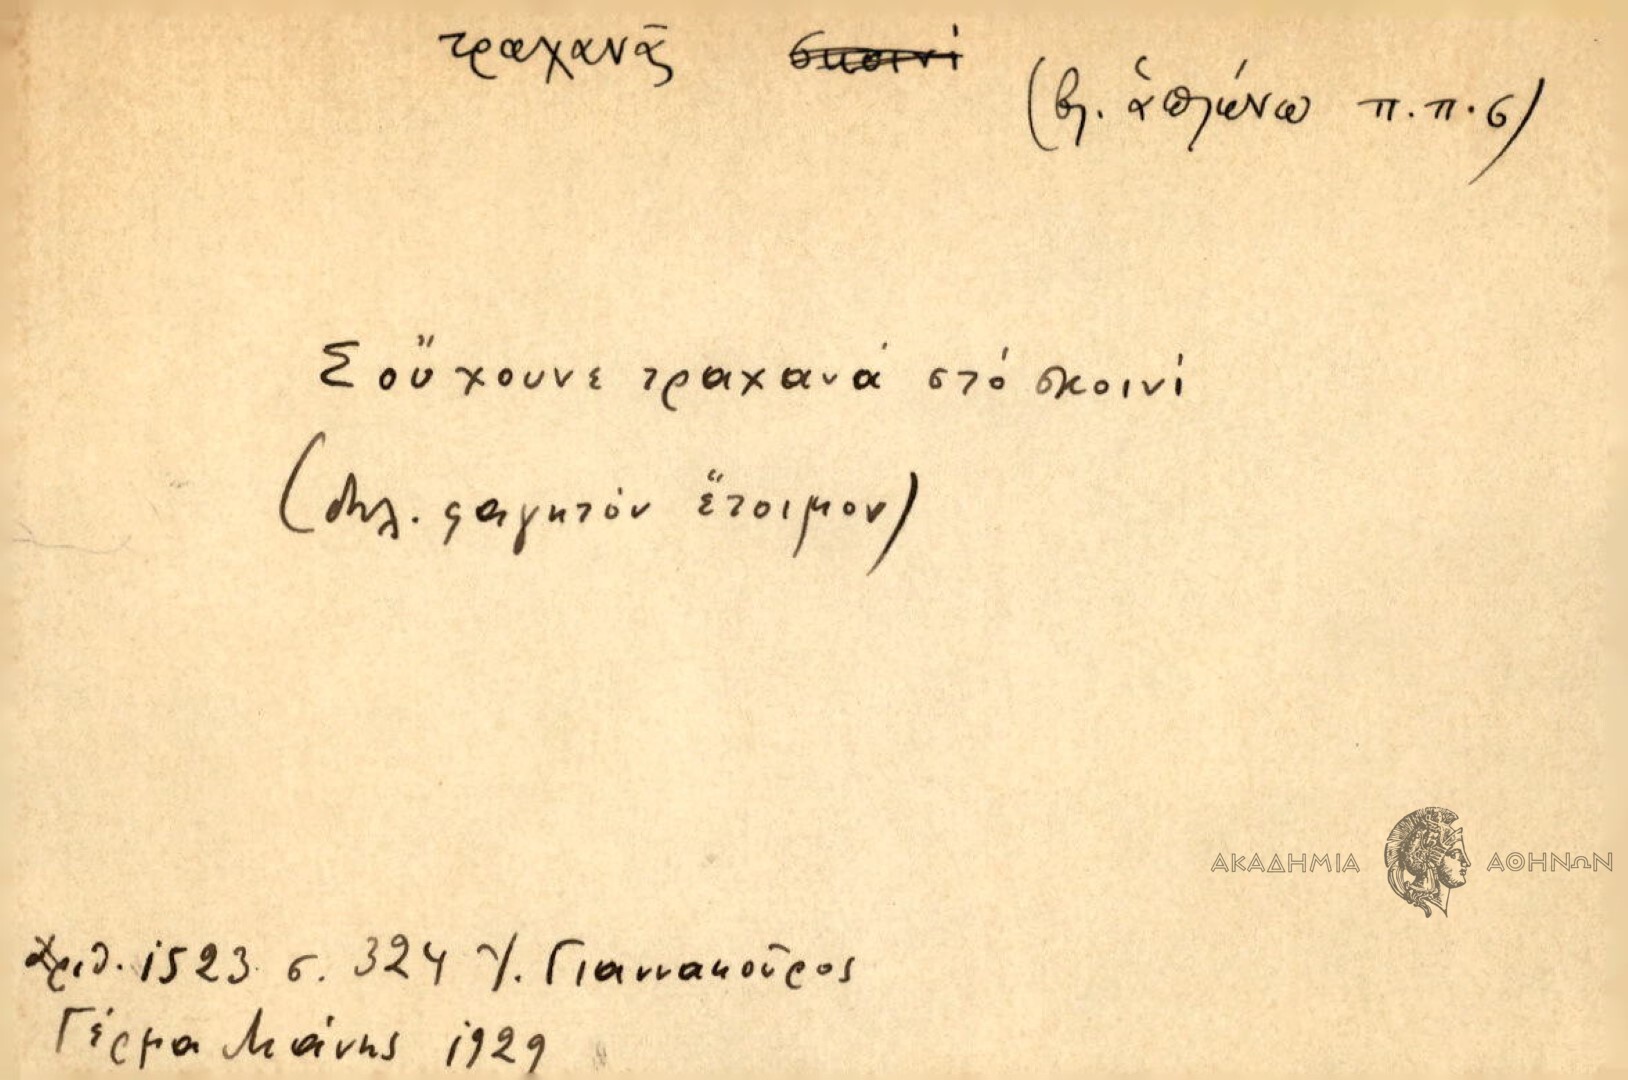 τραχανᾶς σκοινί
(βλ. ἁπλώνω π.π.σ)
Σοὔχουνε τραχανά στό σκοινί
(δηλ. φαγητόν ἕτοιμον)
ΑΚΑΔΗΜΙΑ ΑΘΗΝΩΝ
Ἀριθ. 1523 σ. 324 Γ. Γιαννακοῦρος
Γέρμα Μάνης 1929